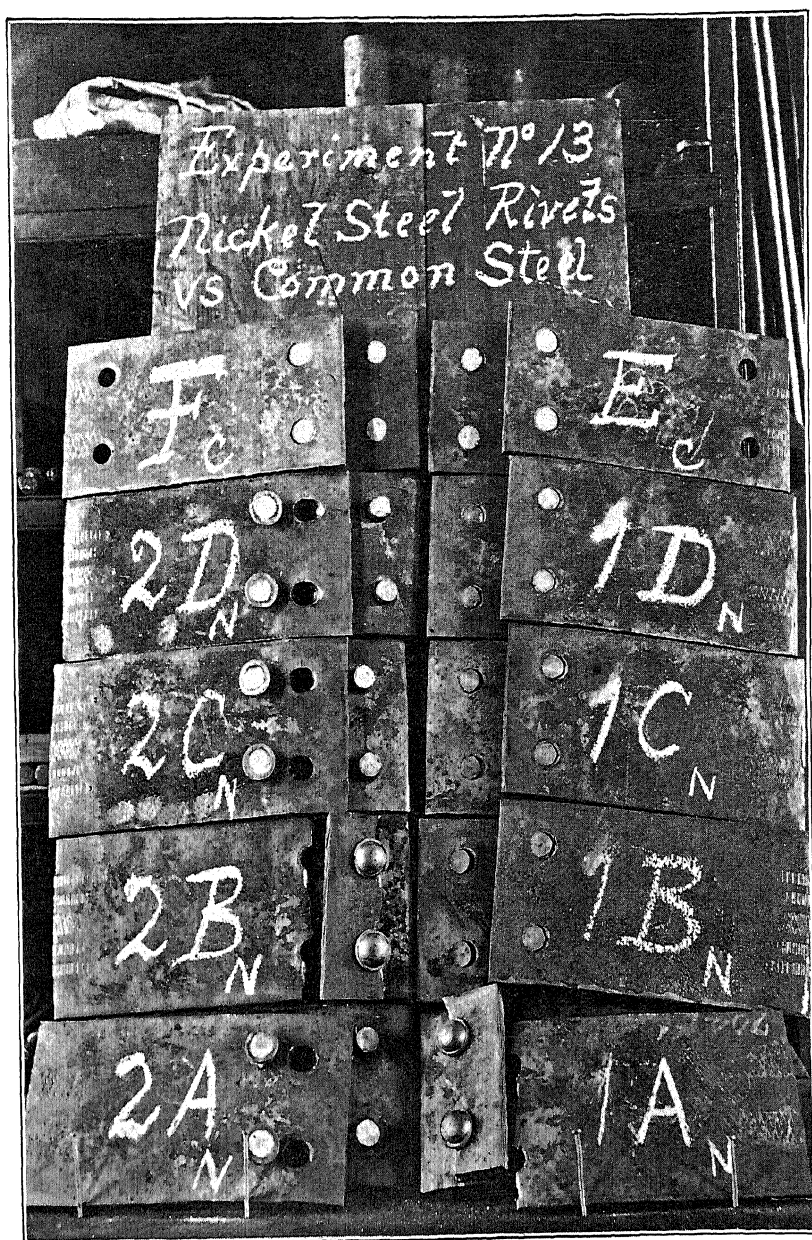 Experiment No 13
Nickel Steel Rivets
vs Common Steel
F C
E C
2D N
1D N
2C N
1C N
2B N
1B N
2A N
1A N